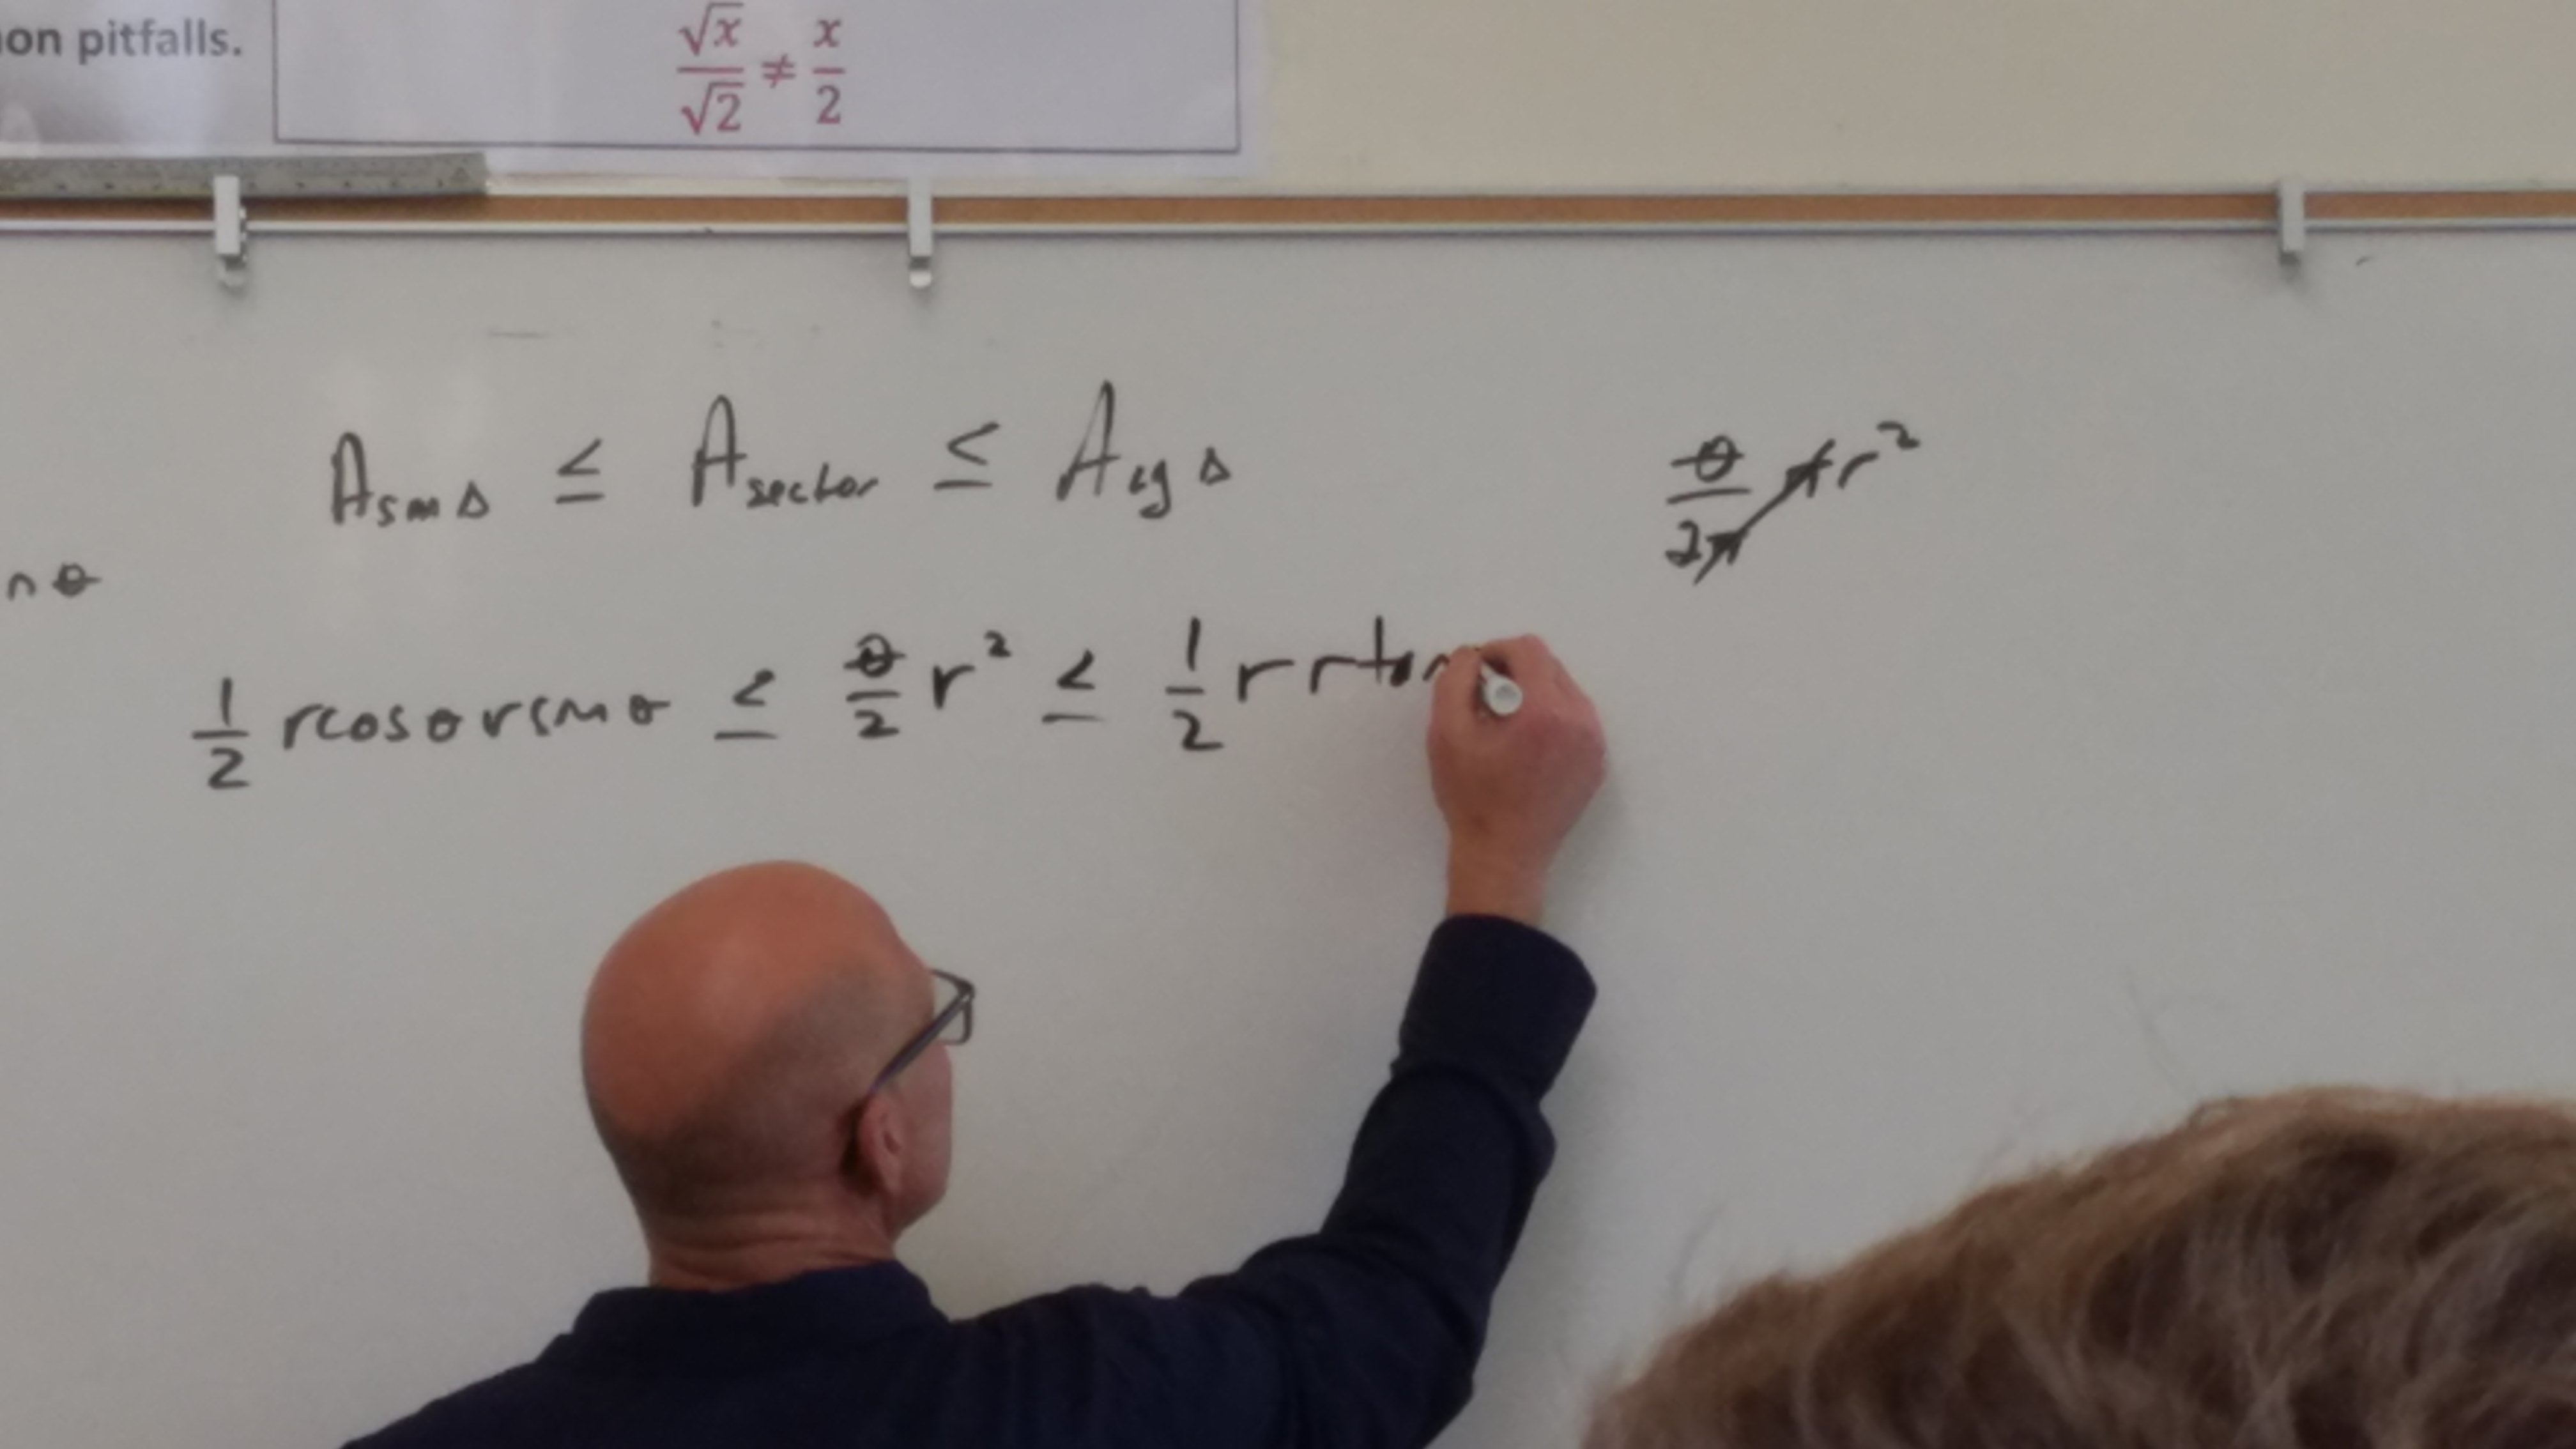 on pitfalls.
√x/√2 ≠ x/2
A sm Δ ≤ A sector ≤ A lg Δ
θ/2π πr²
n θ
1/2 rcosθ rsinθ ≤ θ/2 r² ≤ 1/2 r rtan